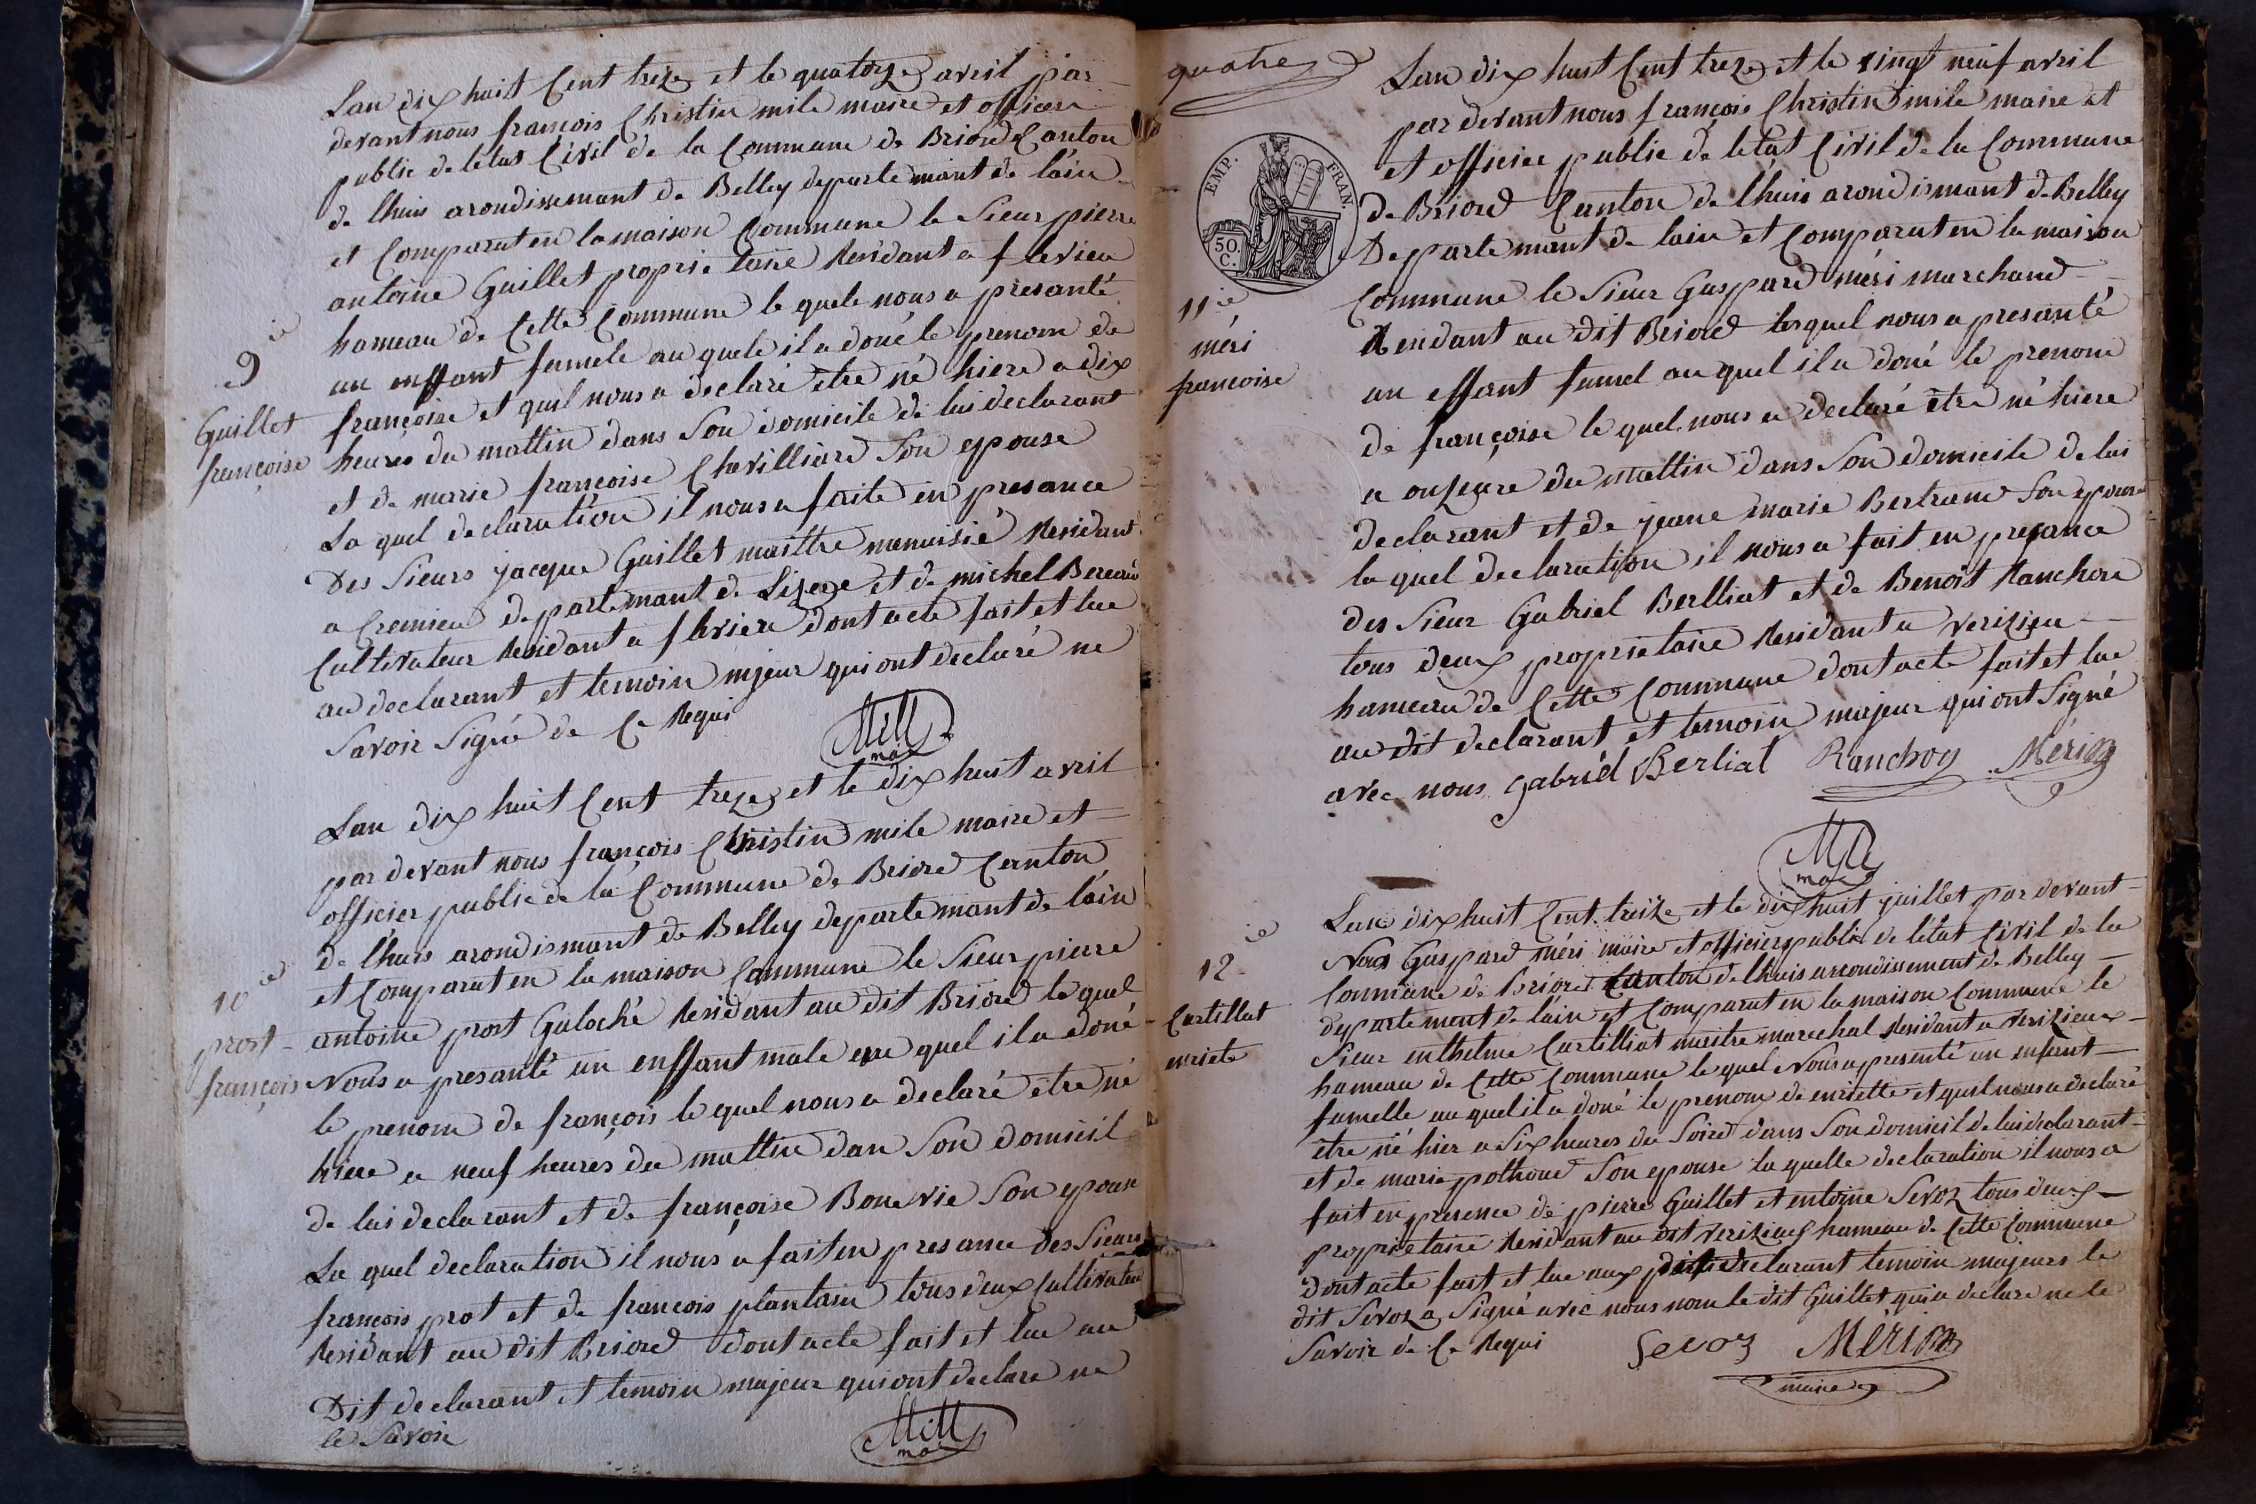 Lan dix huit Cent treze et le quatorze avril par
devant nous françois Christin mile maire et officier
public de letat Civil de la Commune de Briord Canton
de lhuis arondissemant de Belley departemant de lain
et Comparut en la maison Commune le Sieur pierre
antoine Guillet proprietaire Residant a flevieu
hameau de Cette Commune le quele nous a presanté
un enffant femele au quele il a doné le prenom de
françoise et quil nous a declaré etre né hiere a dix
heures du mattin dans Son domicile de lui declarant
et de marie françoise Chevilliard Son epouse
La quel declaration il nous a faite en presance
Des Sieurs jacque Guillet maittre menuisié Residant
a Cremieu departemant de Lizere et de michel Bereau
Cultivateur Residant a flevieu dont acte fait et lue
au declarant et temoin mjeur qui ont declaré ne
Savoir Signé de Ce Requi
Mill
mai
9 ie
Guillet
françoise
Lan dix huit Cent treze et le dix huit avril
par devant nous françois Christin mile maire et
officier public de la Commune de Briord Canton
de lhuis arondismant de Belley departemant de lain
et Comparut en la maison Commune le Sieur pierre
antoine prost Galoché Residant au dit Briord le quel
Nous a presanté un enffant male au quel il a doné
le prenom de françois le quel nous a declaré etre né
hiere a neuf heures du mattin dan Son domicil
de lui declarant et de françoise Bonevie Son epouse
La quel declaration il nous a fait en presance des Sieurs
françois prot et de françois plantain tous deux Cultivateur
Residant au dit Briord dont acte fait et lue au
Dit declarant et temoin majeur qui ont declare ne
le Savoir
Mill
mai
10 ie
prost
françois
quatre
EMP. FRAN.
50 C.
Lan dix huit Cent treze et le vingt neuf avril
par devant nous françois Christin mile maire et
et officier public de letat Civil de la Commune
de Briord Canton de lhuis arondismant de Belley
Departemant de lain et Comparut en la maison
Commune le Sieur Gaspard méri marchand
Residant au dit Briord lequel nous a presanté
un effant femel au quel il a doné le prenom
de françoise le quel nous a declaré etre né hiere
a onzeure du mattin dans Son domicile de lui
declarant et de jeane marie Bertrand Son epouse
la quel declaration il nous a fait en presance
des Sieur Gabriel Berlliat et de Benoit Ranchon
tous deux proprietaire Residant a verizieu
hameau de Cette Commune dont acte fait et lue
au dit declarant et temoin majeur qui ont Signé
avec nous gabriel Berliat Ranchon Méri
11 ie
méri
francoise
Lan dix huit Cent treize et le dix huit juillet par devant
Nous Gaspard méri maire et officier public de létat Civil de la
Commune de Briord Canton de lhuis arrondissement de Belley
departement de lain et Comparut en la maison Commune le
Sieur enthelme Cartilliat maitre marechal Residant a verizieux
hameau de Cette Commune le quel Nous a presenté un enfant
famelle au quel il a doné le prenom de enriette et quil nous a declaré
etre né hier a Six heures du Soire dans Son domicil de lui declarant
et de marie pothoud Son epouse la quelle declaration il nous a
fait en presence de pierre Guillet et entoine Sevoz tous deux
proprietaire Residant au dit verizieux hameau de Cette Commune
Dont acte fait et lue aux declarant temoin majeurs le
dit Sevoz a Signé avec nous nom le dit Guillet qui a declare ne le
Savoir de Ce Requi Sevoz Méri
maire
12 ie
Cartillat
enriete